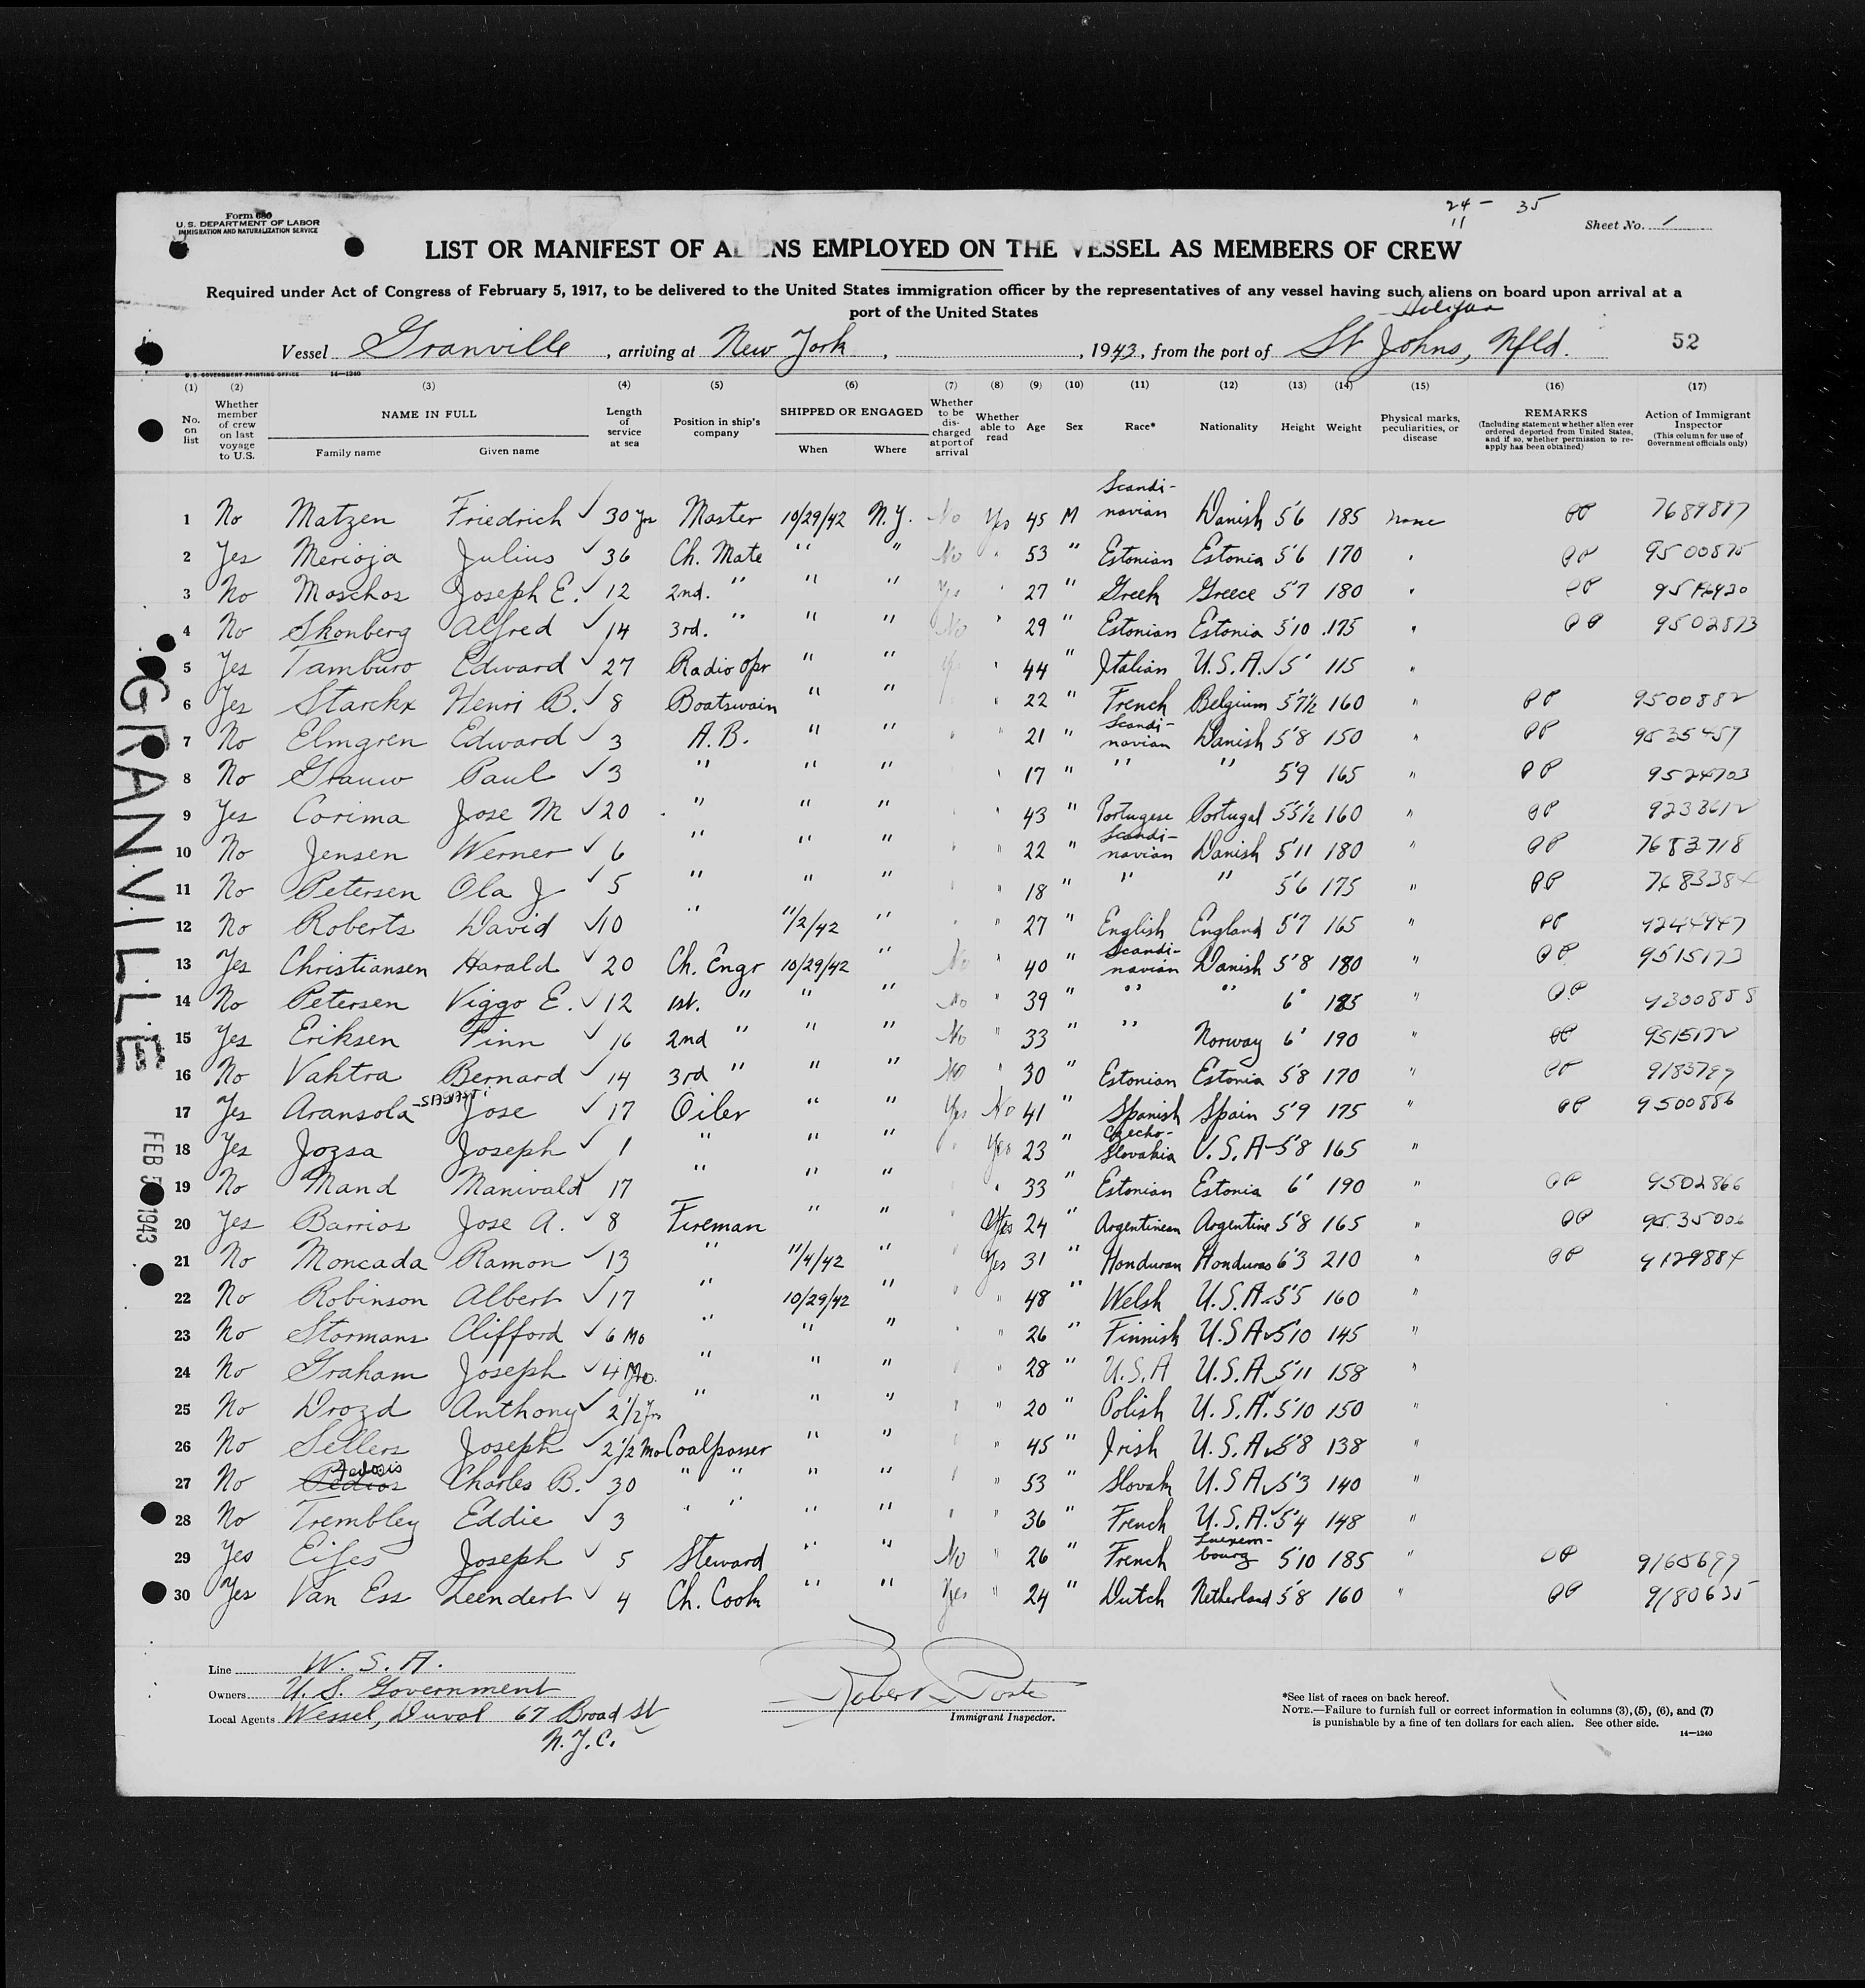 24 – 35
11
Form 680
U. S. DEPARTMENT OF LABOR
IMMIGRATION AND NATURALIZATION SERVICE
Sheet No. 1
LIST OR MANIFEST OF ALIENS EMPLOYED ON THE VESSEL AS MEMBERS OF CREW
Required under Act of Congress of February 5, 1917, to be delivered to the United States immigration officer by the representatives of any vessel having such aliens on board upon arrival at a
port of the United States
Halifax
Vessel Granville, arriving at New York, , 1943, from the port of St Johns, Nfld. 52
U. S. GOVERNMENT PRINTING OFFICE 14—1240
(1) (2) (3) (4) (5) (6) (7) (8) (9) (10) (11) (12) (13) (14) (15) (16) (17)
No. on list
Whether member of crew on last voyage to U.S.
NAME IN FULL
Family name Given name
Length of service at sea
Position in ship's company
SHIPPED OR ENGAGED
When Where
Whether to be discharged at port of arrival
Whether able to read
Age
Sex
Race*
Nationality
Height
Weight
Physical marks, peculiarities, or disease
REMARKS
(Including statement whether alien ever ordered deported from United States, and if so, whether permission to reapply has been obtained)
Action of Immigrant Inspector
(This column for use of Government officials only)
1 No Matzen Friedrich ✓ 30 yrs Master 10/29/42 N.Y. No Yes 45 M Scandi-navian Danish 5'6 185 None PP 7689887
2 Yes Merioja Julius ✓ 36 Ch. Mate " " No " 53 " Estonian Estonia 5'6 170 " PP 9500875
3 No Moschos Joseph E. ✓ 12 2nd. " " " Yes " 27 " Greek Greece 5'7 180 " PP
4 No Skonberg Alfred ✓ 14 3rd. " " " No " 29 " Estonian Estonia 5'10 175 " PP 9502873
5 Yes Tamburo Edward ✓ 27 Radio Opr " " Yes " 44 " Italian U.S.A. ✓ 5' 115 "
6 Yes Starckx Henri B. ✓ 8 Boatswain " " " " 22 " French Belgium 5'7½ 160 " PP 9500882
7 No Elmgren Edward ✓ 3 A.B. " " " " 21 " Scandi-navian Danish 5'8 150 " PP 9535457
8 No Grauw Paul ✓ 3 " " " " 17 " " " 5'9 165 " PP 9524703
9 Yes Corima Jose M ✓ 20 " " " " " 43 " Portugese Portugal 5'5½ 160 " PP 9233612
10 No Jensen Werner ✓ 6 " " " " " 22 " Scandi-navian Danish 5'11 180 " PP 7683718
11 No Petersen Ola J ✓ 5 " " " " " 18 " " " 5'6 175 " PP 7683384
12 No Roberts David ✓ 10 " 11/2/42 " " " 27 " English England 5'7 165 " PP
13 Yes Christiansen Harald ✓ 20 Ch. Engr 10/29/42 " No " 40 " Scandi-navian Danish 5'8 180 " PP 9515173
14 No Petersen Viggo E. ✓ 12 1st. " " " No " 39 " " " 6' 185 " PP
15 Yes Eriksen Finn ✓ 16 2nd " " " No " 33 " " Norway 6' 190 " PP 9515172
16 No Vahtra Bernard ✓ 14 3rd " " " No " 30 " Estonian Estonia 5'8 170 " PP
17 Yes Aransola Jose ✓ 17 Oiler " " Yes No 41 " Spanish Spain 5'9 175 " PP 9500886
18 Yes Jozsa Joseph ✓ 1 " " " " Yes 23 " Czecho-Slovakia U.S.A 5'8 165 "
19 No Mand Manivald ✓ 17 " " " " 33 " Estonian Estonia 6' 190 " PP 9502866
20 Yes Barrios Jose A. ✓ 8 Fireman " " " Yes 24 " Argentinean Argentine 5'8 165 " PP 9535006
21 No Moncada Ramon ✓ 13 " 11/4/42 " " Yes 31 " Honduran Honduras 6'3 210 " PP 9129884
22 No Robinson Albert ✓ 17 " 10/29/42 " " 48 " Welsh U.S.A. 5'5 160 "
23 No Stormans Clifford ✓ 6 Mo " " " " " 26 " Finnish U.S.A ✓ 5'10 145 "
24 No Graham Joseph ✓ 4 Mo. " " " " " 28 " U.S.A U.S.A. 5'11 158 "
25 No Drozd Anthony ✓ 2½ Yrs " " " " " 20 " Polish U.S.A. 5'10 150 "
26 No Sellers Joseph ✓ 2½ Mo Coalpasser " " " " 45 " Irish U.S.A ✓ 5'8 138 "
27 No Charles B. ✓ 30 " " " " " " 53 " Slovak U.S.A ✓ 5'3 140 "
28 No Trembley Eddie ✓ 3 " " " " " " 36 " French U.S.A. ✓ 5'4 148 "
29 Yes Eifes Joseph ✓ 5 Steward " " No " 26 " French Luxem-bourg 5'10 185 " PP 9165699
30 Yes Van Ess Leendert ✓ 4 Ch. Cook " " Yes " 24 " Dutch Netherland 5'8 160 " PP 9180635
GRANVILLE
FEB 5 1943
Line W. S. A.
Owners U. S. Government
Local Agents Wessel, Duval 67 Broad St
N.Y.C.
Immigrant Inspector.
*See list of races on back hereof.
NOTE.—Failure to furnish full or correct information in columns (3), (5), (6), and (7)
is punishable by a fine of ten dollars for each alien. See other side.
14—1240